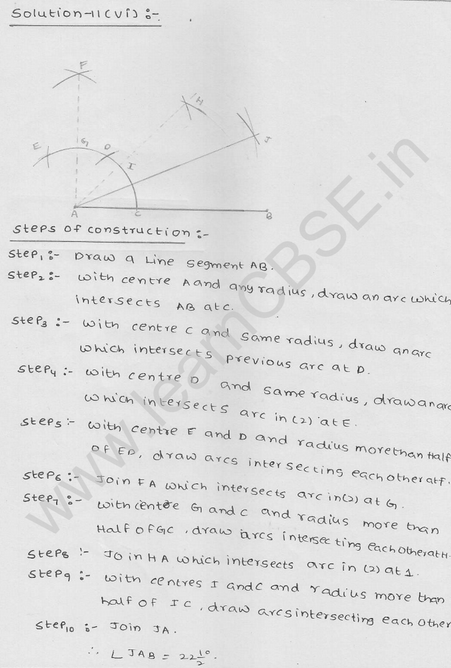 Solution-11(vi) :-
F
H
E
G
D
I
J
A
C
B
Steps of construction :-
Step1 :- Draw a Line segment AB.
Step2 :- with centre A and any radius, draw an arc which
intersects AB at C.
Step3 :- with centre C and same radius, draw an arc
which intersects previous arc at D.
Step4 :- with centre D and same radius, draw an arc
which intersects arc in (2) at E.
Step5 :- with centre E and D and radius more than Half
of ED, draw arcs intersecting each other at F.
Step6 :- Join FA which intersects arc in (2) at G.
Step7 :- with centre G and C and radius more than
Half of GC, draw arcs intersecting each other at H.
Step8 :- Join HA which intersects arc in (2) at I.
Step9 :- with centres I and C and radius more than
half of IC, draw arcs intersecting each other
Step10 :- Join JA.
∴ ∠JAB = 22 1/2°.
www.learnCBSE.in